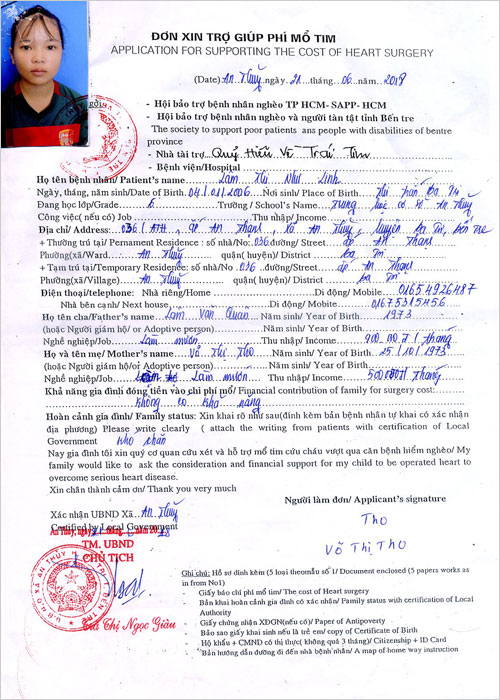 ĐƠN XIN TRỢ GIÚP PHÍ MỔ TIM
APPLICATION FOR SUPPORTING THE COST OF HEART SURGERY
(Date) An Thủy ngày 21 tháng 06 năm 2018
- Hội bảo trợ bệnh nhân nghèo TP HCM- SAPP- HCM
- Hội bảo trợ bệnh nhân nghèo và người tàn tật tỉnh Bến tre
The society to support poor patients ans people with disabilities of bentre
province
- Nhà tài trợ Quỹ Hiểu Về Trái Tim
- Bệnh viện/Hospital
Họ tên bệnh nhân/ Patient's name Lâm Thị Như Linh
Ngày, tháng, năm sinh/Date of Birth 04.01.2006 Nơi sinh/ Place of Birth Thị trấn Ba Tri
Đang học lớp/Grade 6 Trường / School's Name Trung học cơ sở An Thủy
Công việc(nếu có) Job Thu nhập/ Income
Địa chỉ/ Address: 036/ ấp An Thạnh, xã An Thủy, huyện Ba Tri, Bến Tre
+ Thường trú tại/ Pernament Residence : số nhà/No: 036 đường/ Street ấp An Thạnh
Phường(xã)/Ward An Thủy quận( huyện)/ District Ba Tri
+ Tạm trú tại/Temporary Residence: số nhà/No 036 đường/Street ấp An Thạnh
Phường(xã)/Village) An Thủy quận( huyện)/ District Ba Tri
Điện thoại/telephone: Nhà riêng/Home Di động/ Mobile 01654926487
Nhà bên cạnh/ Next house Di động/ Mobile 01675315456
Họ tên cha/Father's name Lâm Văn Quân Năm sinh/ Year of Birth 1973
(hoặc Người giám hộ/ or Adoptive person) Năm sinh/ Year of Birth
Nghề nghiệp/Job Làm mướn Thu nhập/ Income 900.000đ/ tháng
Họ và tên mẹ/ Mother's name Võ Thị Thơ Năm sinh/ Year of Birth 15/10/1973
(hoặc Người giám hộ/ or Adoptive person) Năm sinh/ Year of Birth
Nghề nghiệp/Job Làm mướn Thu nhập/ Income 500000đ/ tháng
Khả năng gia đình đóng tiền vào chi phí mổ/ Financial contribution of family for surgery cost:
không có khả năng
Hoàn cảnh gia đình/ Family status: Xin khai rõ như sau(đính kèm bản bệnh nhân tự khai có xác nhận
địa phương) Please write clearly ( attach the writing from patients with certification of Local
Government khó khăn
Nay gia đình tôi xin quý cơ quan cứu xét và hỗ trợ mổ tim cứu cháu vượt qua căn bệnh hiểm nghèo/ My
family would like to ask the consideration and financial support for my child to be operated heart to
overcome serious heart disease.
Xin chân thành cảm ơn/ Thank you very much
Người làm đơn/ Applicant's signature
Xác nhận UBND Xã An Thủy
Certified by Local Government
TM. UBND
CHỦ TỊCH
Thơ
Võ Thị Thơ
Thị Ngọc Giàu
Ghi chú: Hồ sơ đính kèm (5 loại theo mẫu số 1/ Document enclosed (5 papers works as
in from No1)
Giấy báo chi phí mổ tim/ The cost of Heart surgery
- Bản khai hoàn cảnh gia đình có xác nhận/ Family status with certification of Local
Authority
- Giấy chứng nhận XDGN(nếu có)/ Paper of Antipoverty
- Bảo sao giấy khai sinh nếu là trẻ em/ copy of Certificate of Birth
- Hộ khẩu + CMND có thị thực( không quá 3 tháng)/ Citizenship + ID Card
- Bản hướng dẫn đường đi đến nhà bệnh nhân/ A map of home way instruction